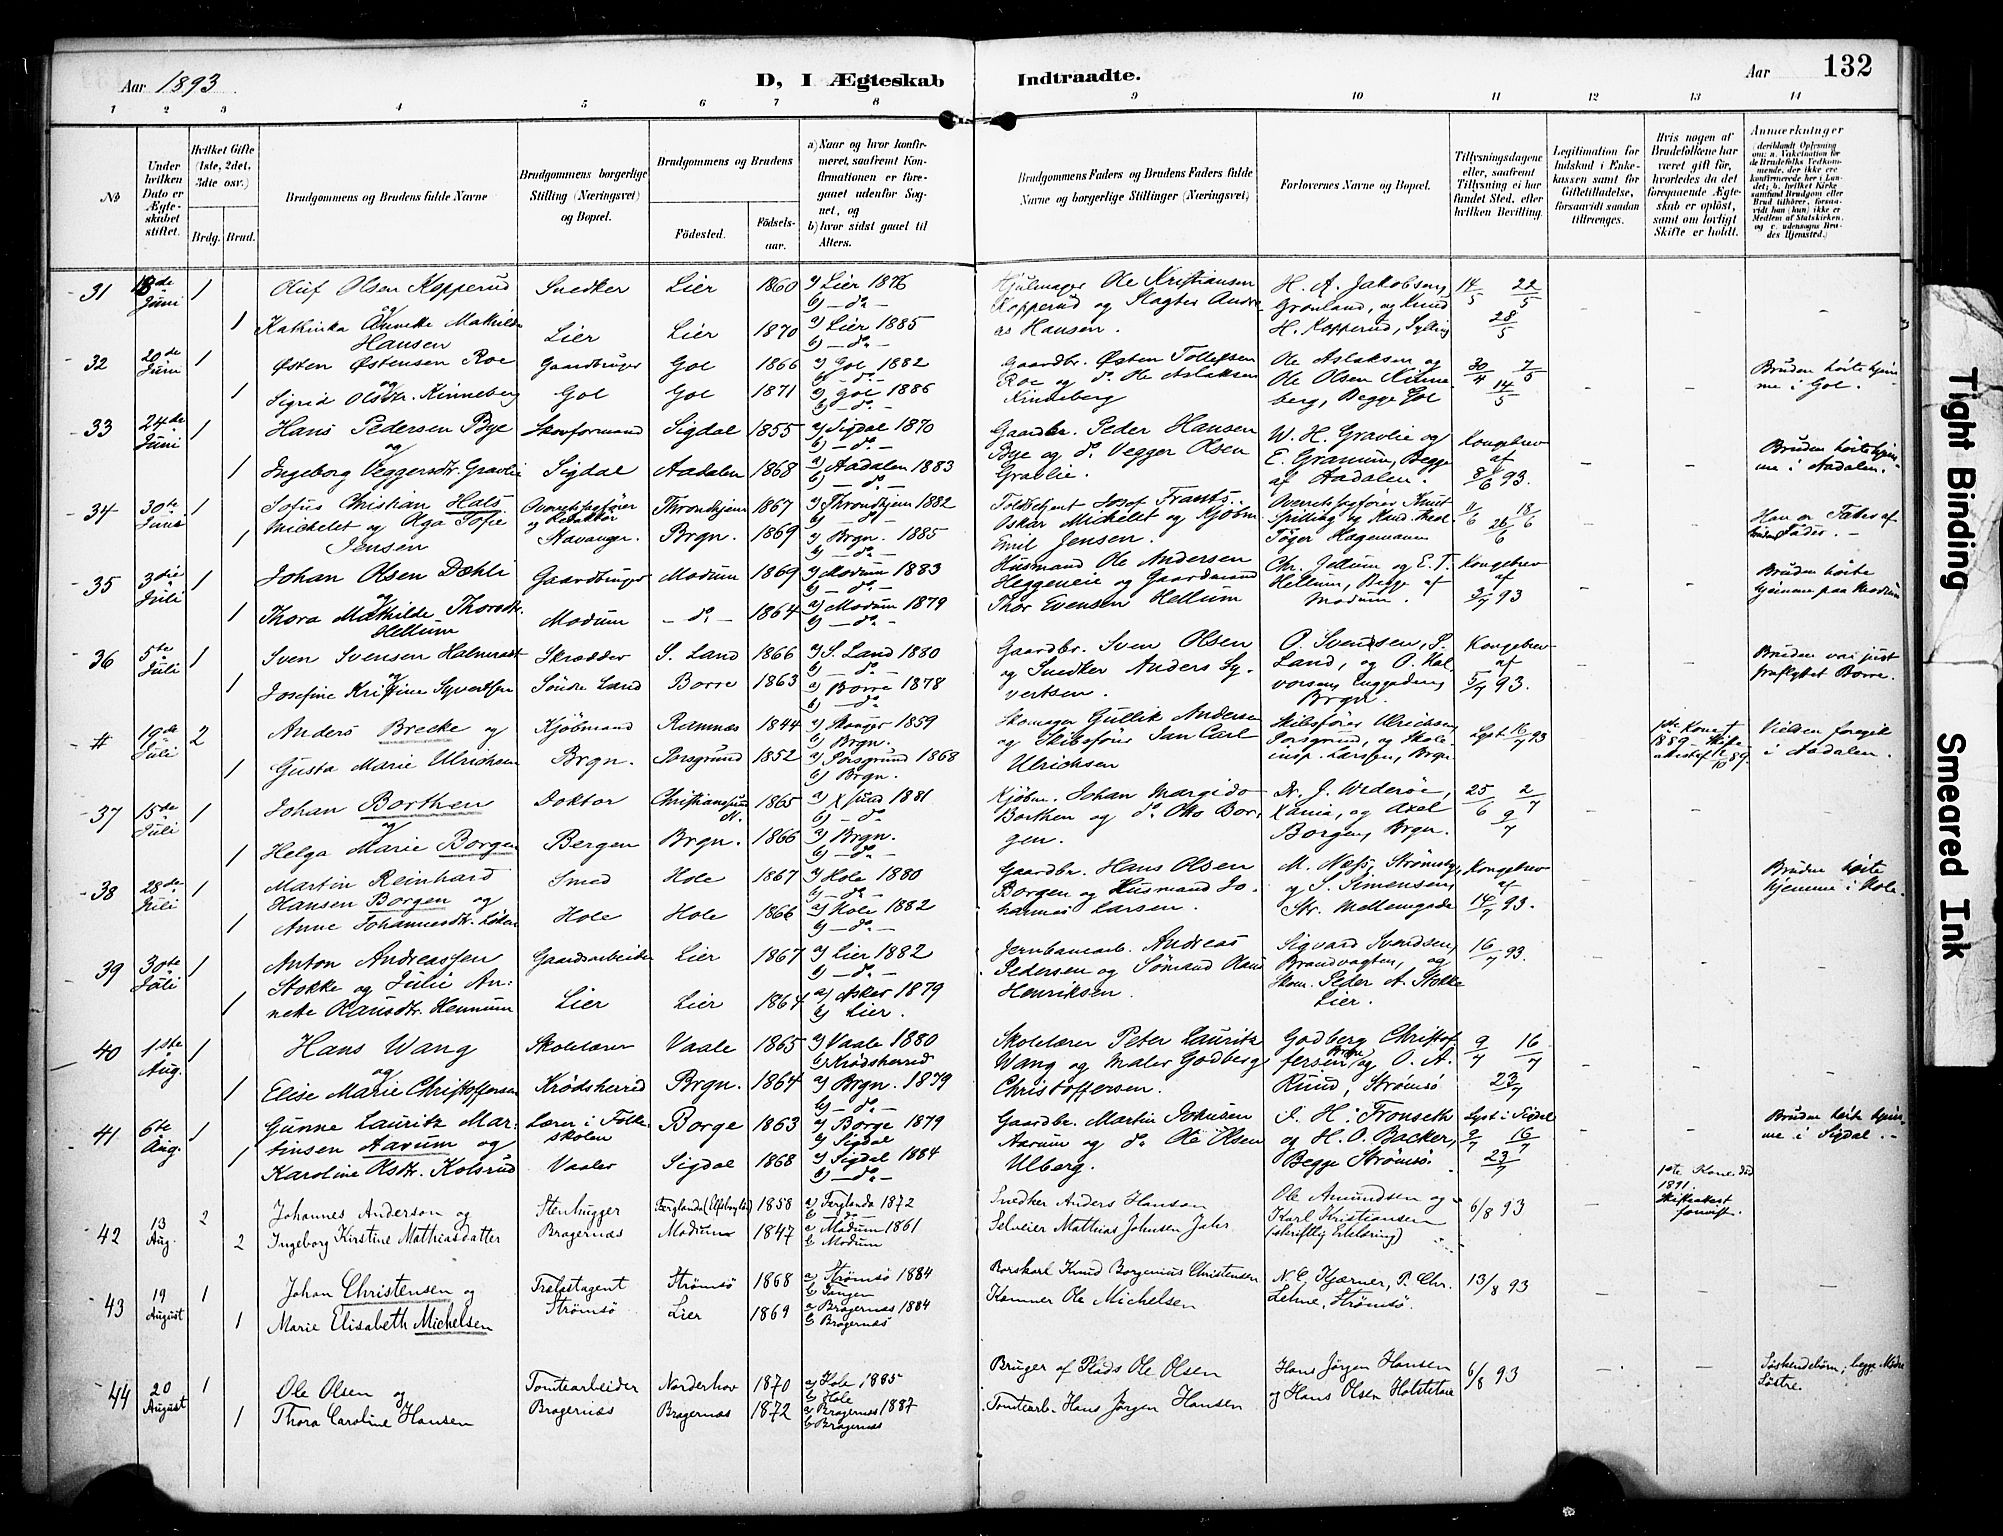 Aar 1893
D, I Ægteskab Indtraadte.
Aar 132
1 2 3 4 5 6 7 8 9 10 11 12 13 14
No
Under hvilken Dato er Ægteskabet stiftet.
Hvilket Gifte (1ste, 2det, 3die osv.)
Brdg. Brud.
Brudgommens og Brudens fulde Navne
Brudgommens borgerlige Stilling (Næringsvei) og Bopæl.
Brudgommens og Brudens
Fødested. Fødselsaar.
a) Naar og hvor konfirmeret, saafremt Konfirmationen er foregaaet udenfor Sognet, og
b) hvor sidst gaaet til Alters.
Brudgommens Faders og Brudens Faders fulde Navne og borgerlige Stillinger (Næringsvei)
Forlovernes Navne og Bopæl.
Tillysningsdagene eller, saafremt Tillysning ei har fundet Sted, efter hvilken Bevilling.
Legitimation for Indskud i Enkekassen samt for Giftetilladelse, forsaavidt saadan tiltrænges.
Hvis nogen af Brudefolkene har været gift før, hvorledes da det foregaaende Ægteskab er opløst, samt om lovligt Skifte er holdt.
Anmærkninger
31 18de Juni 1 Oluf Olsen Kopperud Snedker Lier 1860 a) Lier 1876 Hjulmager Ole Kristiansen H. A. Jakobsen, 14/5 22/5
og b) - do - Kopperud og Slagter Andre Grønland, og Knud 28/5
1 Kathinka Mathilde Hansen Lier Lier 1870 a) Lier 1885 as Hansen. H. Kopperud, Sylling
b) - do -
32 20de Juni 1 Østen Østensen Roe Gaardbruger Gol 1866 a) Gol 1882 Gaardbr. Østen Tollefsen Ole Aslaksen og 30/4 7/5 Bruden hørte hjem-
og b) - do - Roe og do. Ole Aslaksen Ole Olsen Kinne 14/5 me i Gol.
1 Sigrid Olsdtr. Kinneberg Gol Gol 1871 a) Gol 1886 Kinneberg berg, Begge Gol
b) - do -
33 24de Juni 1 Hans Pedersen Bye Skovformand Sigdal 1855 a) Sigdal 1870 Gaardbr. Peder Hansen W. H. Gravlie og Kongebrev Bruden hørte hjem-
og b) - do - Bye og do. Vegger Olsen E. Granum, Begge af me i Aadalen.
1 Ingeborg Veggersdtr. Gravlie Sigdal Aadalen 1868 a) Aadalen 1883 Gravlie. af Aadalen. 8/6 93.
b) - do -
34 30te Juni 1 Sofus Christian Hals Overretssagfører Throndhjem 1867 a) Throndhjem 1882 Toldbetjent Josef Frants Overretssagfører Knut 18/6
Michelet og Olga Sofie og Redaktør b) - do - Oskar Michelet og Kjøbm. Spilling og Kand. theol. 26/6
1 Jensen Stavanger. Brgn. 1869 a) Brgn. 1885 Emil Jensen. Tøger Hagemann Fader.
b) - do -
35 3die Juli 1 Johan Olsen Dæhli Gaardbruger Modum 1869 a) Modum 1883 Husmand Ole Andersen Chr. Jellum og E. T. Kongebrev Bruden hørte
og b) - do - Heggeneie og Gaardmand Hellum, Begge af af hjemme paa Modum
1 Thora Mathilde Thorsdtr. Hellum Modum - do - 1864 a) Modum 1879 Thor Evensen Hellum Modum. 3/7 93
b) - do -
36 5te Juli 1 Sven Svensen Skrædder S. Land 1866 a) S. Land 1880 Gaardbr. Sven Olsen O. Svendsen, S. Kongebrev Bruden var just
og b) - do - og Snedker Anders Sy- Land, og O. Hal af fraflyttet Borre.
1 Josefine Kristine Syvertsen Søndre Land Borre 1863 a) Borre 1878 vertsen. vorsen, Brgn. 5/7 93.
b) - do -
# 19de Juli 2 Anders Brecke og Kjøbmand Ramnæs 1844 1859 Skomager Gullik Andersen Skibsfører Ulrichsen Lyst 16/7 93 1ste Kone † 1889 Vielsen foregik
b) Brgn. og Skibsfører Jan Carl Porsgrund, og Skole i Aadalen.
1 Gusta Marie Ulrichsen Brgn. Porsgrund 1852 a) Porsgrund 1868 Ulrichsen insp. Larssen, Brgn.
b) Brgn.
37 15de Juli 1 Johan Borthen Doktor Christianssund N. 1865 a) Xsund 1881 Kjøbm. Johan Margido N. J. Wederøe, 25/6 2/7
og b) - do - Borthen og do. Otto Bor- Xania, og Axel 9/7
1 Helga Marie Borgen Bergen Brgn. 1866 a) Brgn. gen. Borgen, Brgn.
b) - do -
38 28de Juli 1 Martin Reinhard Smed Hole 1867 a) Hole 1880 Gaardbr. Hans Olsen M. Næss, Strømsø, Kongebrev Bruden hørte
Hansen Borgen og b) - do - Borgen og Husmand Jo- og S. Simensen, af hjemme i Hole.
1 Anne Johannesdtr. Løken Hole Hole 1866 a) Hole 1882 hannes Larsen. Str. Mellemgade 14/7 93.
b) - do -
39 30te Juli 1 Anton Andreassen Gaardsarbeider Lier 1867 a) Lier 1882 Jernbanearb. Andreas Sigvard Svendsen, 16/7 93.
Stokke og Julie An- b) - do - Pedersen og Sømand Klaus Brandvagten, og
1 nette Klausdtr. Hennum Lier Lier 1864 a) Asker 1879 Henriksen. Skom. Peder A. Stokke
b) Lier. Lier.
40 1ste Aug. 1 Hans Wang Skolelærer Vaale 1865 a) Vaale 1880 Skolelærer Peter Lauritz Godberg Christof 9/7 16/7
og b) Krødsherred Wang og Maler Godberg fersen, Brgn. og O. A. 23/7
1 Elise Marie Christoffersen Krødsherred Brgn. 1864 a) Brgn. 1879 Christoffersen. Ruud, Strømsø
b) - do -
41 6te Aug. 1 Gunne Lauritz Mar- Lærer i Folke- Borge 1863 a) Borge 1879 Gaardbr. Martin J. H. Tronseth Lyst i Sigdal Bruden hørte hjem-
tinsen Aarum og skolen b) Sigdal Aarum og do. Ole Olsen og H. O. Backer, 9/7 16/7 me i Sigdal.
1 Karoline Olsdtr. Kolsrud Vaaler Sigdal 1868 a) Sigdal 1884 Ulberg. Begge Strømsø. 23/7
b) - do -
42 13 Aug. 2 Johannes Anderson og Stenhugger Ferglanda (Elfsborg län) 1858 a) Ferglanda 1872 Snedker Anders Hanson Ole Amundsen og 6/8 93 1ste Kone død 1891.
b - do -
2 Ingeborg Kirstine Mathiasdatter Bragernæs Modum 1847 a) Modum 1861 Selveier Mathias Johnsen Jahr. Karl Kristiansen Skifteakast forevist.
b Modum (skriftlig Erklæring)
43 19 August 1 Johan Christensen og Trælastagent Strømsø 1868 a) Strømsø 1884 Borskarl Knud Borgenius Christensen N. C. Kjærner, P. Chr. 13/8 93
b Tangen
1 Marie Elisabeth Michelsen Strømsø Lier 1869 a Bragernæs 1884 Kæmner Ole Michelsen Lehne, Strømsø.
b Bragernæs
44 20 August 1 Ole Olsen og Tomtearbeider Norderhov 1870 a) Hole 1885 Bruger af Plads Ole Olsen Hans Jørgen Hansen 6/8 93 Søskendebørn; begge Mødre
b) Hole Søstre.
1 Thora Caroline Hansen Bragernæs Bragernæs 1872 a Bragernæs 1887 Tomtearb. Hans Jørgen Hansen og Hans Olsen
b Bragernæs
Tight Binding
Smeared Ink